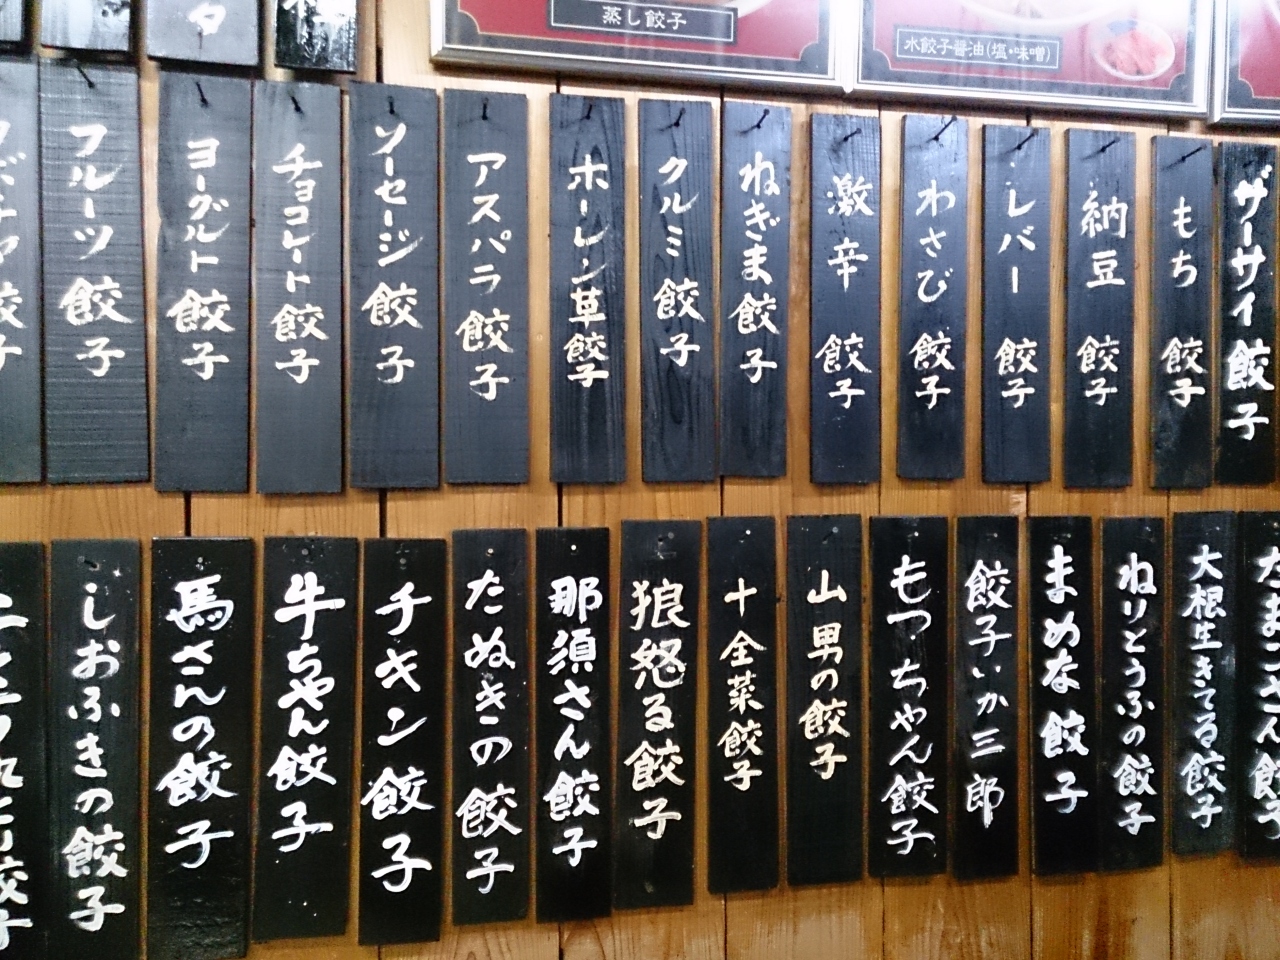 蒸し餃子
水餃子醤油(塩・味噌)
ザーサイ餃子
もち餃子
納豆餃子
レバー餃子
わさび餃子
激辛餃子
ねぎま餃子
クルミ餃子
ホーレン草餃子
アスパラ餃子
ソーセージ餃子
チョコレート餃子
ヨーグルト餃子
フルーツ餃子
大根生きてる餃子
ねりとうふの餃子
まめな餃子
餃子いか三郎
もつちゃん餃子
山男の餃子
十全菜餃子
狼怒る餃子
那須さん餃子
たぬきの餃子
チキン餃子
牛ちゃん餃子
馬さんの餃子
しおふきの餃子